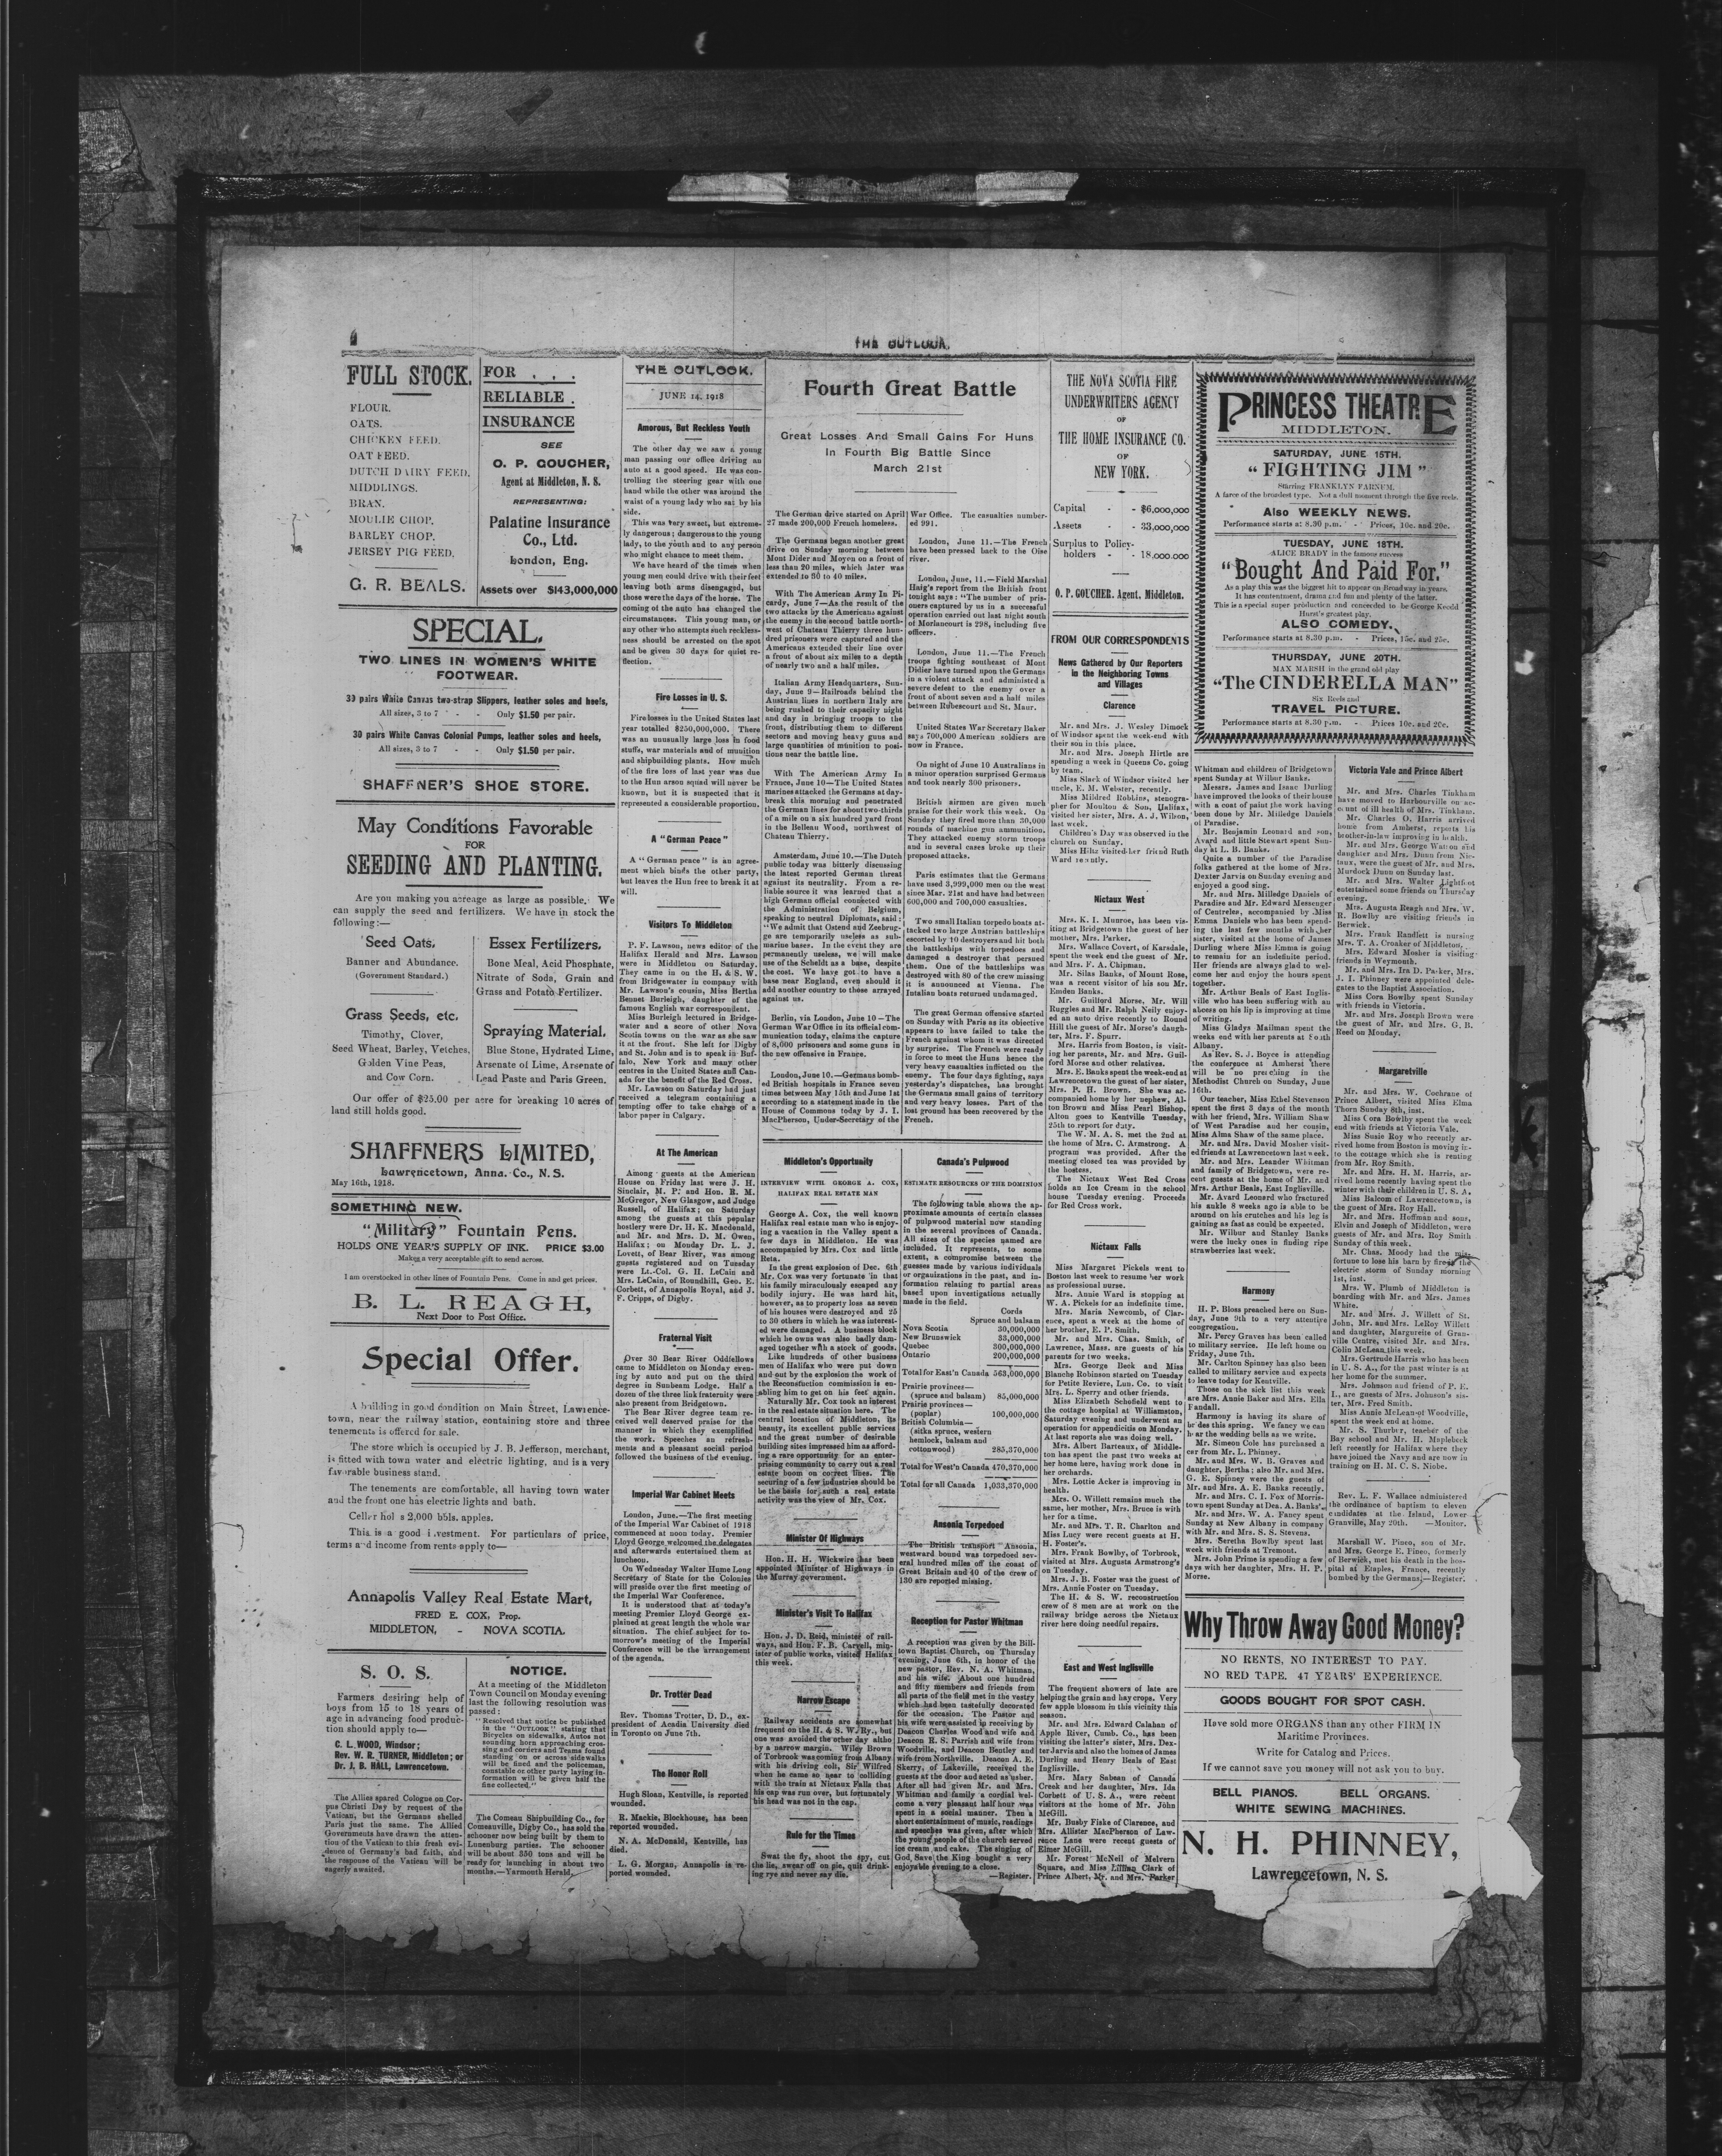 THE OUTLOOK.
FULL STOCK.
FLOUR.
OATS.
CHICKEN FEED.
OAT FEED.
DUTCH DAIRY FEED.
MIDDLINGS.
BRAN.
MOULIE CHOP.
BARLEY CHOP.
JERSEY PIG FEED.
G. R. BEALS.
FOR . . .
RELIABLE .
INSURANCE
SEE
O. P. GOUCHER,
Agent at Middleton, N. S.
REPRESENTING:
Palatine Insurance
Co., Ltd.
London, Eng.
Assets over $143,000,000
SPECIAL.
TWO LINES IN WOMEN'S WHITE
FOOTWEAR.
30 pairs White Canvas two-strap Slippers, leather soles and heels,
All sizes, 3 to 7 - - Only $1.50 per pair.
30 pairs White Canvas Colonial Pumps, leather soles and heels,
All sizes, 3 to 7 - - Only $1.50 per pair.
SHAFFNER'S SHOE STORE.
May Conditions Favorable
FOR
SEEDING AND PLANTING.
Are you making you acreage as large as possible. We
can supply the seed and fertilizers. We have in stock the
following:—
Seed Oats.
Banner and Abundance.
(Government Standard.)
Grass Seeds, etc.
Timothy, Clover,
Seed Wheat, Barley, Vetches,
Golden Vine Peas,
and Cow Corn.
Essex Fertilizers.
Bone Meal, Acid Phosphate,
Nitrate of Soda, Grain and
Grass and Potato Fertilizer.
Spraying Material.
Blue Stone, Hydrated Lime,
Arsenate of Lime, Arsenate of
Lead Paste and Paris Green.
Our offer of $25.00 per acre for breaking 10 acres of
land still holds good.
SHAFFNERS LIMITED,
Lawrencetown, Anna. Co., N. S.
May 16th, 1918.
SOMETHING NEW.
"Military" Fountain Pens.
HOLDS ONE YEAR'S SUPPLY OF INK. PRICE $3.00
Makes a very acceptable gift to send across.
I am overstocked in other lines of Fountain Pens. Come in and get prices.
B. L. REAGH,
Next Door to Post Office.
Special Offer.
A building in good condition on Main Street, Lawrence-
town, near the railway station, containing store and three
tenements is offered for sale.
The store which is occupied by J. B. Jefferson, merchant,
is fitted with town water and electric lighting, and is a very
favorable business stand.
The tenements are comfortable, all having town water
and the front one has electric lights and bath.
Cellar hol s 2,000 bbls. apples.
This is a good i vestment. For particulars of price,
terms and income from rents apply to—
Annapolis Valley Real Estate Mart,
FRED E. COX, Prop.
MIDDLETON, - NOVA SCOTIA.
S. O. S.
Farmers desiring help of
boys from 15 to 18 years of
age in advancing food produc-
tion should apply to—
C. L. WOOD, Windsor;
Rev. W. R. TURNER, Middleton; or
Dr. J. B. HALL, Lawrencetown.
The Allies spared Cologne on Cor-
pus Christi Day by request of the
Vatican, but the Germans shelled
Paris just the same. The Allied
Governments have drawn the atten-
tion of the Vatican to this fresh evi-
dence of Germany's bad faith, and
the response of the Vatican will be
eagerly awaited.
NOTICE.
At a meeting of the Middleton
Town Council on Monday evening
last the following resolution was
passed:
"Resolved that notice be published
in the "OUTLOOK" stating that
Bicycles on sidewalks, Autos not
sounding horn approaching cros-
sing and corners and Teams found
standing on or across sidewalks
will be fined and the policeman,
constable or other party laying in-
formation will be given half the
fine collected."
The Comeau Shipbuilding Co., for
Comeauville, Digby Co., has sold the
schooner now being built by them to
Lunenburg parties. The schooner
will be about 350 tons and will be
ready for launching in about two
months.—Yarmouth Herald.
THE OUTLOOK.
JUNE 14, 1918
Amorous, But Reckless Youth
The other day we saw a young
man passing our office driving an
auto at a good speed. He was con-
trolling the steering gear with one
hand while the other was around the
waist of a young lady who sat by his
side.
This was very sweet, but extreme-
ly dangerous; dangerous to the young
lady, to the youth and to any person
who might chance to meet them.
We have heard of the times when
young men could drive with their feet
leaving both arms disengaged, but
those were the days of the horse. The
coming of the auto has changed the
circumstances. This young man, or
any other who attempts such reckless-
ness should be arrested on the spot
and be given 30 days for quiet re-
flection.
Fire Losses in U. S.
Fire losses in the United States last
year totalled $250,000,000. There
was an unusually large loss in food
stuffs, war materials and of munition
and shipbuilding plants. How much
of the fire loss of last year was due
to the Hun arson squad will never be
known, but it is suspected that it
represented a considerable proportion.
A "German Peace"
A "German peace" is an agree-
ment which binds the other party,
but leaves the Hun free to break it at
will.
Visitors To Middleton
P. F. Lawson, news editor of the
Halifax Herald and Mrs. Lawson
were in Middleton on Saturday.
They came in on the H. & S. W.
from Bridgewater in company with
Mr. Lawson's cousin, Miss Bertha
Bennet Burleigh, daughter of the
famous English war correspondent.
Miss Burleigh lectured in Bridge-
water and a score of other Nova
Scotia towns on the war as she saw
it at the front. She left for Digby
and St. John and is to speak in Buf-
falo, New York and many other
centres in the United States and Can-
ada for the benefit of the Red Cross.
Mr. Lawson on Saturday had just
received a telegram containing a
tempting offer to take charge of a
labor paper in Calgary.
At The American
Among guests at the American
House on Friday last were J. H.
Sinclair, M. P. and Hon. R. M.
McGregor, New Glasgow, and Judge
Russell, of Halifax; on Saturday
among the guests at this popular
hostlery were Dr. H. K. Macdonald,
and Mr. and Mrs. D. M. Owen,
Halifax; on Monday Dr. L. J.
Lovett, of Bear River, was among
guests registered and on Tuesday
were Lt.-Col. G. H. LeCain and
Mrs. LeCain, of Roundhill, Geo. E.
Corbett, of Annapolis Royal, and J.
F. Cripps, of Digby.
Fraternal Visit
Over 30 Bear River Oddfellows
came to Middleton on Monday even-
ing by auto and put on the third
degree in Sunbeam Lodge. Half a
dozen of the three link fraternity were
also present from Bridgetown.
The Bear River degree team re-
ceived well deserved praise for the
manner in which they exemplified
the work. Speeches an refresh-
ments and a pleasant social period
followed the business of the evening.
Imperial War Cabinet Meets
London, June.—The first meeting
of the Imperial War Cabinet of 1918
commenced at noon today. Premier
Lloyd George welcomed the delegates
and afterwards entertained them at
luncheon.
On Wednesday Walter Hume Long
Secretary of State for the Colonies
will preside over the first meeting of
the Imperial War Conference.
It is understood that at today's
meeting Premier Lloyd George ex-
plained at great length the whole war
situation. The chief subject for to-
morrow's meeting of the Imperial
Conference will be the arrangement
of the agenda.
Dr. Trotter Dead
Rev. Thomas Trotter, D. D., ex-
president of Acadia University died
in Toronto on June 7th.
The Honor Roll
Hugh Sloan, Kentville, is reported
wounded.
R. Mackie, Blockhouse, has been
reported wounded.
N. A. McDonald, Kentville, has
died.
L. G. Morgan, Annapolis is re-
ported wounded.
Fourth Great Battle
Great Losses And Small Gains For Huns
In Fourth Big Battle Since
March 21st
The German drive started on April
27 made 200,000 French homeless.
The Germans began another great
drive on Sunday morning between
Mont Dider and Moyen on a front of
less than 20 miles, which later was
extended to 30 to 40 miles.
With The American Army In Pi-
cardy, June 7—As the result of the
two attacks by the Americans against
the enemy in the second battle north-
west of Chateau Thierry three hun-
dred prisoners were captured and the
Americans extended their line over
a front of about six miles to a depth
of nearly two and a half miles.
Italian Army Headquarters, Sun-
day, June 9—Railroads behind the
Austrian lines in northern Italy are
being rushed to their capacity night
and day in bringing troops to the
front, distributing them to different
sectors and moving heavy guns and
large quantities of munition to posi-
tions near the battle line.
With The American Army In
France, June 10—The United States
marines attacked the Germans at day-
break this morning and penetrated
the German lines for about two-thirds
of a mile on a six hundred yard front
in the Belleau Wood, northwest of
Chateau Thierry.
Amsterdam, June 10.—The Dutch
public today was bitterly discussing
the latest reported German threat
against its neutrality. From a re-
liable source it was learned that a
high German official connected with
the Administration of Belgium,
speaking to neutral Diplomats, said:
"We admit that Ostend and Zeebrug-
ge are temporarily useless as sub-
marine bases. In the event they are
permanently useless, we will make
use of the Scheldt as a base, despite
the cost. We have got to have a
base near England, even should it
add another country to those arrayed
against us.
Berlin, via London, June 10—The
German War Office in its official com-
munication today, claims the capture
of 8,000 prisoners and some guns in
the new offensive in France.
London, June 10.—Germans bomb-
ed British hospitals in France seven
times between May 15th and June 1st
according to a statement made in the
House of Commons today by J. I.
MacPherson, Under-Secretary of the
War Office. The casualties number-
ed 991.
London, June 11.—The French
have been pressed back to the Oise
river.
London, June, 11.—Field Marshal
Haig's report from the British front
tonight says: "The number of pris-
oners captured by us in a successful
operation carried out last night south
of Morlancourt is 298, including five
officers.
London, June 11.—The French
troops fighting southeast of Mont
Didier have turned upon the Germans
in a violent attack and administed a
severe defeat to the enemy over a
front of about seven and a half miles
between Rubescourt and St. Maur.
United States War Secretary Baker
says 700,000 American soldiers are
now in France.
On night of June 10 Australians in
a minor operation surprised Germans
and took nearly 300 prisoners.
British airmen are given much
praise for their work this week. On
Sunday they fired more than 30,000
rounds of machine gun ammunition.
They attacked enemy storm troops
and in several cases broke up their
proposed attacks.
Paris estimates that the Germans
have used 3,999,000 men on the west
since Mar. 21st and have had between
600,000 and 700,000 casualties.
Two small Italian torpedo boats at-
tacked two large Austrian battleships
escorted by 10 destroyers and hit both
the battleships with torpedoes and
damaged a destroyer that persued
them. One of the battleships was
destroyed with 80 of the crew missing
it is announced at Vienna. The
Intalian boats returned undamaged.
The great German offensive started
on Sunday with Paris as its objective
appears to have failed to take the
French against whom it was directed
by surprise. The French were ready
in force to meet the Huns hence the
very heavy casualties inflicted on the
enemy. The four days fighting, says
yesterday's dispatches, has brought
the Germans small gains of territory
and very heavy losses. Part of the
lost ground has been recovered by the
French.
Middleton's Opportunity
INTERVIEW WITH GEORGE A. COX,
HALIFAX REAL ESTATE MAN
George A. Cox, the well known
Halifax real estate man who is enjoy-
ing a vacation in the Valley spent a
few days in Middleton. He was
accompanied by Mrs. Cox and little
Reta.
In the great explosion of Dec. 6th
Mr. Cox was very fortunate in that
his family miraculously escaped any
bodily injury. He was hard hit,
however, as to property loss as seven
of his houses were destroyed and 25
to 30 others in which he was interest-
ed were damaged. A business block
which he owns was also badly dam-
aged together with a stock of goods.
Like hundreds of other business
men of Halifax who were put down
and out by the explosion the work of
the Reconstuction commission is en-
abling him to get on his feet again.
Naturally Mr. Cox took an interest
in the real estate situation here. The
central location of Middleton, its
beauty, its excellent public services
and the great number of desirable
building sites impressed him as afford-
ing a rare opportunity for an enter-
prising community to carry out a real
estate boom on correct lines. The
securing of a few industries should be
the basis for such a real estate
activity was the view of Mr. Cox.
Minister Of Highways
Hon. H. H. Wickwire has been
appointed Minister of Highways in
the Murray government.
Minister's Visit To Halifax
Hon. J. D. Reid, minister of rail-
ways, and Hon. F. B. Carvell, min-
ister of public works, visited Halifax
this week.
Narrow Escape
Railway accidents are somewhat
frequent on the H. & S. W. Ry., but
one was avoided the other day altho
by a narrow margin. Wiley Brown
of Torbrook was coming from Albany
with his driving colt, Sir Wilfred
when he came so near to colliding
with the train at Nictaux Falls that
his cap was run over, but fortunately
his head was not in the cap.
Rule for the Times
Swat the fly, shoot the spy, cut
the lie, swear off on pie, quit drink-
ing rye and never say die.
Canada's Pulpwood
ESTIMATE RESOURCES OF THE DOMINION
The following table shows the ap-
proximate amounts of certain classes
of pulpwood material now standing
in the several provinces of Canada.
All sizes of the species named are
included. It represents, to some
extent, a compromise between the
guesses made by various individuals
or organizations in the past, and in-
formation relating to partial areas
based upon investigations actually
made in the field.
Cords
Spruce and balsam
Nova Scotia 30,000,000
New Brunswick 33,000,000
Quebec 300,000,000
Ontario 200,000,000
Total for East'n Canada 563,000,000
Prairie provinces—
(spruce and balsam) 85,000,000
Prairie provinces—
(poplar) 100,000,000
British Columbia—
(sitka spruce, western
hemlock, balsam and
cottonwood) 285,370,000
Total for West'n Canada 470,370,000
Total for all Canada 1,033,370,000
Ansonia Torpedoed
The British transport Ansonia,
westward bound was torpedoed sev-
eral hundred miles off the coast of
Great Britain and 40 of the crew of
130 are reported missing.
Reception for Pastor Whitman
A reception was given by the Bill-
town Baptist Church, on Thursday
evening, June 6th, in honor of the
new pastor, Rev. N. A. Whitman,
and his wife. About one hundred
and fifty members and friends from
all parts of the field met in the vestry
which had been tastefully decorated
for the occasion. The Pastor and
his wife were assisted in receiving by
Deacon Charles Wood and wife and
Deacon R. S. Parrish and wife from
Woodville, and Deacon Bentley and
wife from Northville. Deacon A. E.
Skerry, of Lakeville, received the
guests at the door and acted as usher.
After all had given Mr. and Mrs.
Whitman and family a cordial wel-
come a very pleasant half hour was
spent in a social manner. Then a
short entertainment of music, readings
and speeches was given, after which
the young people of the church served
ice cream and cake. The singing of
God Save the King bought a very
enjoyable evening to a close.
—Register.
THE NOVA SCOTIA FIRE
UNDERWRITERS AGENCY
OF
THE HOME INSURANCE CO.
OF
NEW YORK.
Capital - - $6,000,000
Assets - - 33,000,000
Surplus to Policy-
holders - - 18,000,000
O. P. GOUCHER, Agent, Middleton.
FROM OUR CORRESPONDENTS
News Gathered by Our Reporters
in the Neighboring Towns
and Villages
Clarence
Mr. and Mrs. J. Wesley Dimock
of Windsor spent the week-end with
their son in this place.
Mr. and Mrs. Joseph Hirtle are
spending a week in Queens Co. going
by team.
Miss Slack of Windsor visited her
uncle, E. M. Webster, recently.
Miss Mildred Robbins, stenogra-
pher for Moulton & Son, Halifax,
visited her sister, Mrs. A. J. Wilson,
last week.
Children's Day was observed in the
church on Sunday.
Miss Hiltz visited her friend Ruth
Ward recently.
Nictaux West
Mrs. K. I. Munroe, has been vis-
iting at Bridgetown the guest of her
mother, Mrs. Parker.
Mrs. Wallace Covert, of Karsdale,
spent the week end the guest of Mr.
and Mrs. F. A. Chipman.
Mr. Silas Banks, of Mount Rose,
was a recent visitor of his son Mr.
Emden Banks.
Mr. Guilford Morse, Mr. Will
Ruggles and Mr. Ralph Neily enjoy-
ed an auto drive recently to Round
Hill the guest of Mr. Morse's daugh-
ter, Mrs. F. Spurr.
Mrs. Harris from Boston, is visit-
ing her parents, Mr. and Mrs. Guil-
ford Morse and other relatives.
Mrs. E. Banks spent the week-end at
Lawrencetown the guest of her sister,
Mrs. P. H. Brown. She was ac-
companied home by her nephew, Al-
ton Brown and Miss Pearl Bishop.
Alton goes to Kentville Tuesday,
25th to report for duty.
The W. M. A. S. met the 2nd at
the home of Mrs. C. Armstrong. A
program was provided. After the
meeting closed tea was provided by
the hostess.
The Nictaux West Red Cross
holds an Ice Cream in the school
house Tuesday evening. Proceeds
for Red Cross work.
Nictaux Falls
Miss Margaret Pickels went to
Boston last week to resume her work
as professional nurse.
Mrs. Annie Ward is stopping at
W. A. Pickels for an indefinite time.
Mrs. Maria Newcomb, of Clar-
ence, spent a week at the home of
her brother, E. P. Smith.
Mr. and Mrs. Chas. Smith, of
Lawrence, Mass. are guests of his
parents for two weeks.
Mrs. George Beck and Miss
Blanche Robinson started on Tuesday
for Petite Reviere, Lun. Co. to visit
Mrs. L. Sperry and other friends.
Miss Elizabeth Schofield went to
the cottage hospital at Williamston,
Saturday evening and underwent an
operation for appendicitis on Monday.
At last reports she was doing well.
Mrs. Albert Barteaux, of Middle-
ton has spent the past two weeks at
her home here, having work done in
her orchards.
Mrs. Lottie Acker is improving in
health.
Mrs. O. Willett remains much the
same, her mother, Mrs. Bruce is with
her for a time.
Mr. and Mrs. T. R. Charlton and
Miss Lucy were recent guests at H.
H. Foster's.
Mrs. Frank Bowlby, of Torbrook,
visited at Mrs. Augusta Armstrong's
on Tuesday.
Mrs. J. B. Foster was the guest of
Mrs. Annie Foster on Tuesday.
The H. & S. W. reconstruction
crew of 8 men are at work on the
railway bridge across the Nictaux
river here doing needful repairs.
East and West Inglisville
The frequent showers of late are
helping the grain and hay crops. Very
few apple blossom in this vicinity this
season.
Mr. and Mrs. Edward Calahan of
Apple River, Cumb. Co., has been
visiting the latter's sister, Mrs. Dex-
ter Jarvis and also the homes of James
Durling and Henry Beals of East
Inglisville.
Mrs. Mary Sabean of Canada
Creek and her daughter, Mrs. Ida
Corbett of U. S. A., were recent
visitors at the home of Mr. John
McGill.
Mr. Busby Fiske of Clarence, and
Mrs. Allister MacPherson of Law-
rence Lane were recent guests of
Elmer McGill.
Mr. Forest McNeil of Melvern
Square, and Miss Lillian Clark of
Prince Albert, Mr. and Mrs. Parker
PRINCESS THEATRE
MIDDLETON.
SATURDAY, JUNE 15TH.
"FIGHTING JIM"
Starring FRANKLYN FARNUM.
A farce of the broadest type. Not a dull moment through the five reels.
Also WEEKLY NEWS.
Performance starts at 8.30 p.m. - Prices, 10c. and 20c.
TUESDAY, JUNE 18TH.
ALICE BRADY in the famous success
"Bought And Paid For."
As a play this was the biggest hit to appear on Broadway in years.
It has contentment, drama and fun and plenty of the latter.
This is a special super production and conceded to be George
Hurst's greatest play.
ALSO COMEDY.
Performance starts at 8.30 p.m. - Prices, 15c. and 25c.
THURSDAY, JUNE 20TH.
MAX MARSH in the grand old play
"The CINDERELLA MAN"
Six Reels and
TRAVEL PICTURE.
Performance starts at 8.30 p.m. - Prices 10c. and 20c.
Whitman and children of Bridgetown
spent Sunday at Wilbur Banks.
Messrs. James and Isaac Durling
have improved the looks of their house
with a coat of paint the work having
been done by Mr. Milledge Daniels
of Paradise.
Mr. Benjamin Leonard and son,
Avard and little Stewart spent Sun-
day at L. B. Banks.
Quite a number of the Paradise
folks gathered at the home of Mrs.
Dexter Jarvis on Sunday evening and
enjoyed a good sing.
Mr. and Mrs. Milledge Daniels of
Paradise and Mr. Edward Messenger
of Centreles, accompanied by Miss
Emma Daniels who has been spend-
ing the last few months with her
sister, visited at the home of James
Durling where Miss Emma is going
to remain for an indefinite period.
Her friends are always glad to wel-
come her and enjoy the hours spent
together.
Mr. Arthur Beals of East Inglis-
ville who has been suffering with au
abcess on his lip is improving at time
of writing.
Miss Gladys Mailman spent the
weeks end with her parents at South
Albany.
As Rev. S. J. Boyce is attending
the conference at Amherst there
will be no preaching in the
Methodist Church on Sunday, June
16th.
Our teacher, Miss Ethel Stevenson
spent the first 3 days of the month
with her friend, Mrs. William Shaw
of West Paradise and her cousin,
Miss Alma Shaw of the same place.
Mr. and Mrs. David Mosher visit-
ed friends at Lawrencetown last week.
Mr. and Mrs. Leander Whitman
and family of Bridgetown, were re-
cent guests at the home of Mr. and
Mrs. Arthur Beals, East Inglisville.
Mr. Avard Leonard who fractured
his ankle 8 weeks ago is able to be
around on his crutches and his leg is
gaining as fast as could be expected.
Mr. Wilbur and Stanley Banks
were the lucky ones in finding ripe
strawberries last week.
Harmony
H. P. Bloss preached here on Sun-
day, June 9th to a very attentive
congregation.
Mr. Percy Graves has been called
to military service. He left home on
Friday, June 7th.
Mr. Carlton Spinney has also been
called to military service and expects
to leave today for Kentville.
Those on the sick list this week
are Mrs. Annie Baker and Mrs. Ella
Fandall.
Harmony is having its share of
brides this spring. We fancy we can
hear the wedding bells as we write.
Mr. Simeon Cole has purchased a
car from Mr. L. Phinney.
Mr. and Mrs. W. B. Graves and
daughter, Bertha; also Mr. and Mrs.
G. E. Spinney were the guests of
Mr. and Mrs. A. E. Banks recently.
Mr. and Mrs. C. I. Fox of Morris-
town spent Sunday at Dea. A. Banks'.
Mr. and Mrs. W. A. Fancy spent
Sunday at New Albany in company
with Mr. and Mrs. S. S. Stevens.
Mrs. Seretha Bowlby spent last
week with friends at Tremont.
Mrs. John Prime is spending a few
days with her daughter, Mrs. H. P.
Morse.
Victoria Vale and Prince Albert
Mr. and Mrs. Charles Tinkham
have moved to Harbourville on ac-
count of ill health of Mrs. Tinkham.
Mr. Charles O. Harris arrived
home from Amherst, reports his
brother-in-law improving in health.
Mr. and Mrs. George Watton and
daughter and Mrs. Dunn from Nic-
taux, were the guest of Mr. and Mrs.
Murdock Dunn on Sunday last.
Mr. and Mrs. Walter Lightfoot
entertained some friends on Thursday
evening.
Mrs. Augusta Reagh and Mrs. W.
R. Bowlby are visiting friends in
Berwick.
Mrs. Frank Randlett is nursing
Mrs. T. A. Croaker of Middleton.
Mrs. Edward Mosher is visiting
friends in Weymouth.
Mr. and Mrs. Ira D. Parker, Mrs.
J. I. Phinney were appointed dele-
gates to the Baptist Association.
Miss Cora Bowlby spent Sunday
with friends in Victoria.
Mr. and Mrs. Joseph Brown were
the guest of Mr. and Mrs. G. B.
Reed on Monday.
Margaretville
Mr. and Mrs. W. Cochrane of
Prince Albert, visited Miss Elma
Thorn Sunday 8th, inst.
Miss Cora Bowlby spent the week
end with friends at Victoria Vale.
Miss Susie Roy who recently ar-
rived home from Boston is moving in-
to the cottage which she is renting
from Mr. Roy Smith.
Mr. and Mrs. H. M. Harris, ar-
rived home recently having spent the
winter with their children in U. S. A.
Miss Balcom of Lawrencetown, is
the guest of Mrs. Roy Hall.
Mr. and Mrs. Hoffman and sons,
Elvin and Joseph of Middleton, were
guests of Mr. and Mrs. Roy Smith
Sunday of this week.
Mr. Chas. Moody had the mis-
fortune to lose his barn by fire in the
electric storm of Sunday morning
1st, inst.
Mrs. W. Plumb of Middleton is
boarding with Mr. and Mrs. James
White.
Mr. and Mrs. J. Willett of St.
John, Mr. and Mrs. LeRoy Willett
and daughter, Margureite of Gran-
ville Centre, visited Mr. and Mrs.
Colin McLean this week.
Mrs. Gertrude Harris who has been
in U. S. A., for the past winter is at
her home for the summer.
Mrs. Johnson and friend of P. E.
I., are guests of Mrs. Johnson's sis-
ter, Mrs. Fred Smith.
Miss Annie McLean of Woodville,
spent the week end at home.
Mr. S. Thurber, teacher of the
Bay school and Mr. H. Maplebeck
left recently for Halifax where they
have joined the Navy and are now in
training on H. M. C. S. Niobe.
Rev. L. F. Wallace administered
the ordinance of baptism to eleven
candidates at the Island, Lower
Granville, May 20th. —Monitor.
Marshall W. Pineo, son of Mr.
and Mrs. George E. Pineo, formerly
of Berwick, met his death in the hos-
pital at Etaples, France, recently
bombed by the Germans.—Register.
Why Throw Away Good Money?
NO RENTS, NO INTEREST TO PAY.
NO RED TAPE. 47 YEARS' EXPERIENCE.
GOODS BOUGHT FOR SPOT CASH.
Have sold more ORGANS than any other FIRM IN
Maritime Provinces.
Write for Catalog and Prices.
If we cannot save you money will not ask you to buy.
BELL PIANOS. BELL ORGANS.
WHITE SEWING MACHINES.
N. H. PHINNEY,
Lawrencetown, N. S.